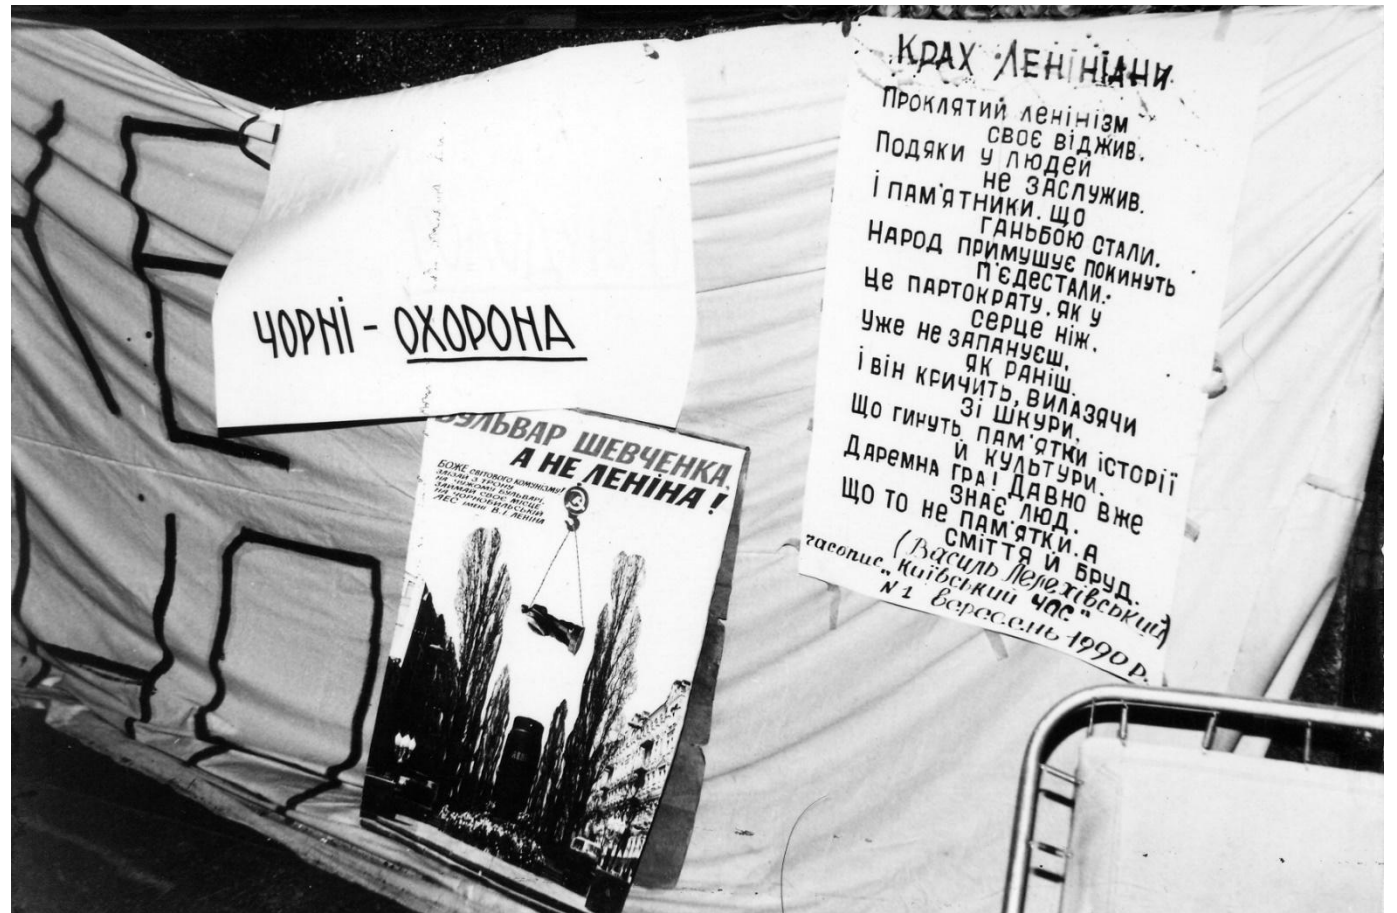 ЧОРНІ - ОХОРОНА
БУЛЬВАР ШЕВЧЕНКА,
А НЕ ЛЕНІНА!
БОЖЕ СВІТОВОГО КОМУНІЗМУ!
ЗЛІЗАЙ З ТРОНУ
НА ЧУЖОМУ БУЛЬВАРІ,
ЗАЙМАЙ СВОЄ МІСЦЕ
НА ЧОРНОБИЛЬСЬКІЙ
АЕС ІМЕНІ В.І. ЛЕНІНА
КРАХ ЛЕНІНІАНИ
ПРОКЛЯТИЙ ЛЕНІНІЗМ
СВОЄ ВІДЖИВ.
ПОДЯКИ У ЛЮДЕЙ
НЕ ЗАСЛУЖИВ.
І ПАМ'ЯТНИКИ. ЩО
ГАНЬБОЮ СТАЛИ.
НАРОД ПРИМУШУЄ ПОКИНУТЬ
П'ЄДЕСТАЛИ.
ЦЕ ПАРТОКРАТУ. ЯК У
СЕРЦЕ НІЖ.
УЖЕ НЕ ЗАПАНУЄШ,
ЯК РАНІШ.
І ВІН КРИЧИТЬ, ВИЛАЗЯЧИ
ЗІ ШКУРИ,
ЩО ГИНУТЬ ПАМ'ЯТКИ ІСТОРІЇ
Й КУЛЬТУРИ.
ДАРЕМНА ГРА! ДАВНО ВЖЕ
ЗНАЄ ЛЮД.
ЩО ТО НЕ ПАМ'ЯТКИ. А
СМІТТЯ Й БРУД.
(Василь Перехівський)
часопис „Київський час"
N 1 вересень 1990 р.